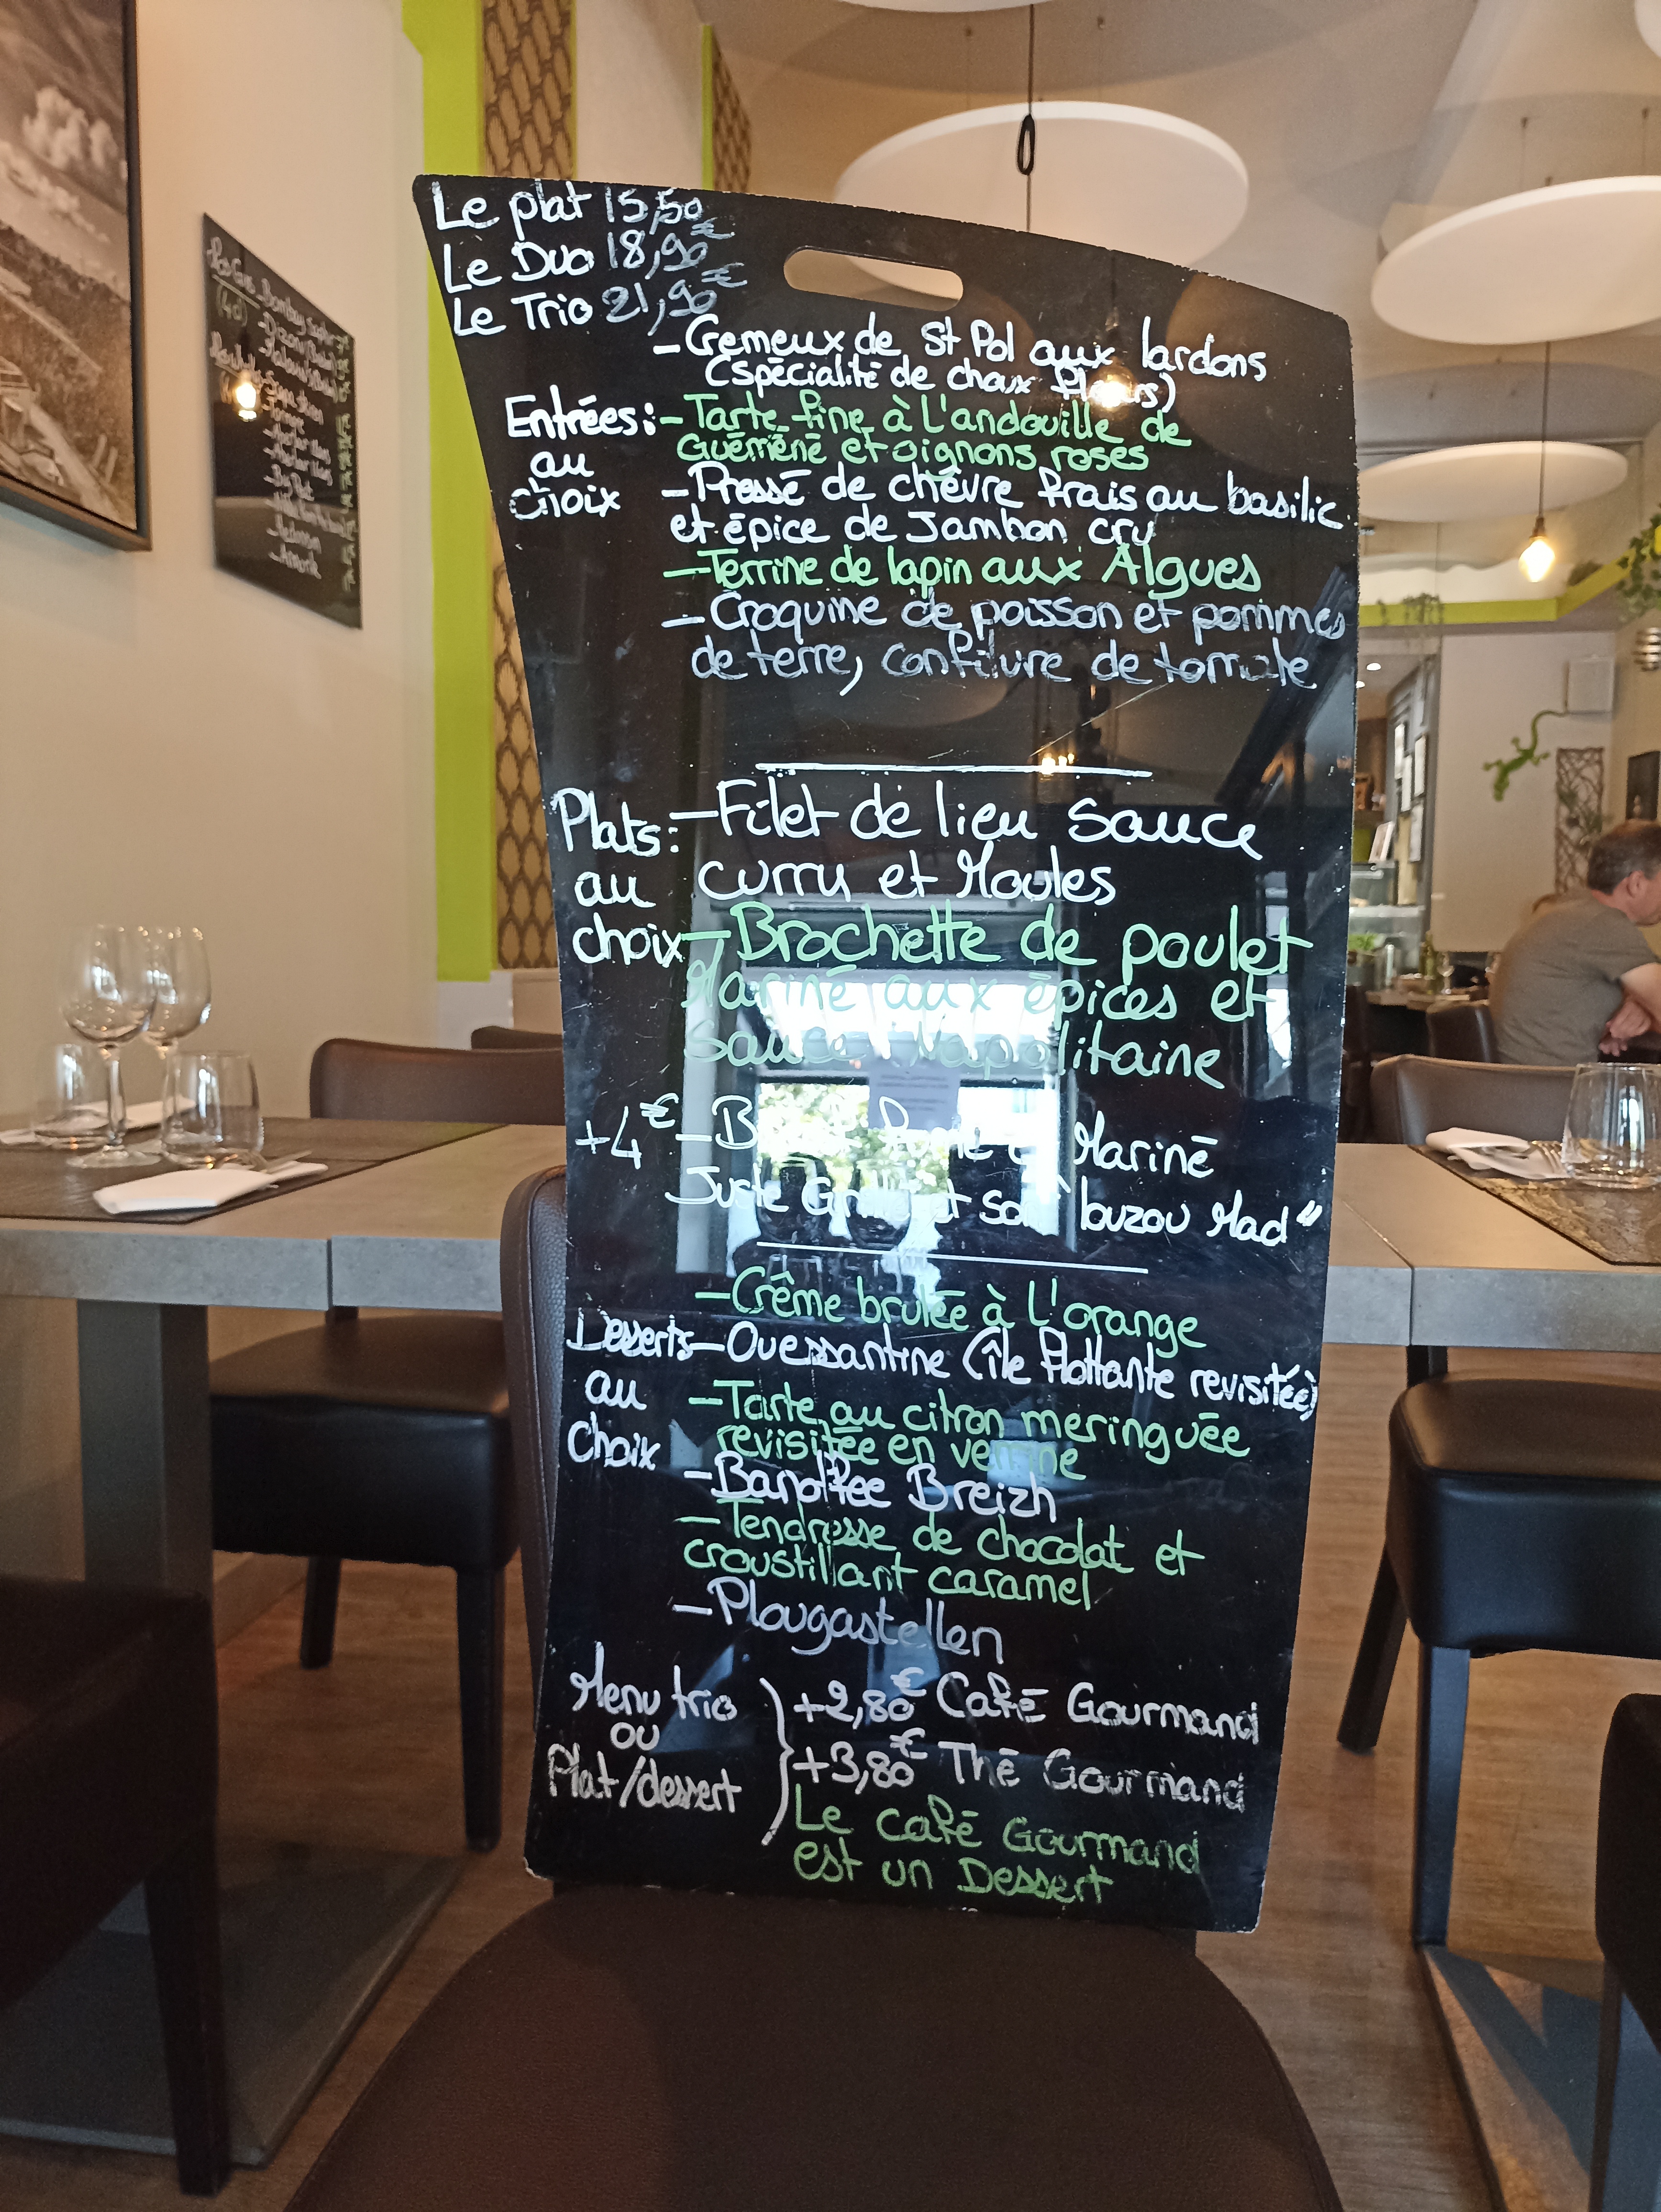 Le plat 15,50€
Le Duo 18,90€
Le Trio 21,90€
- Cremeux de St Pol aux lardons
(spécialité de choux fleurs)
Entrées: - Tarte fine à L'andouille de
Guéméné et oignons roses
au
choix
- Pressé de chèvre frais au basilic
et épice de Jambon cru
- Terrine de lapin aux Algues
- Croquine de poisson et pommes
de terre, confiture de tomate
Plats: - Filet de lieu sauce
au
curry et Moules
choix - Brochette de poulet
Mariné aux épices et
Sauce Napolitaine
+4€ - Mariné
Juste et "louzou Mad"
- Crême brulée à L'orange
Desserts - Ouessantine (île flottante revisitée)
au
choix
- Tarte au citron meringuée
revisitée en verrine
- Banoffee Breizh
- Tendresse de chocolat et
croustillant caramel
- Plougastellen
Menu trio
ou
Plat/dessert
+2,80€ Café Gourmand
+3,80€ Thé Gourmand
Le café Gourmand
est un Dessert